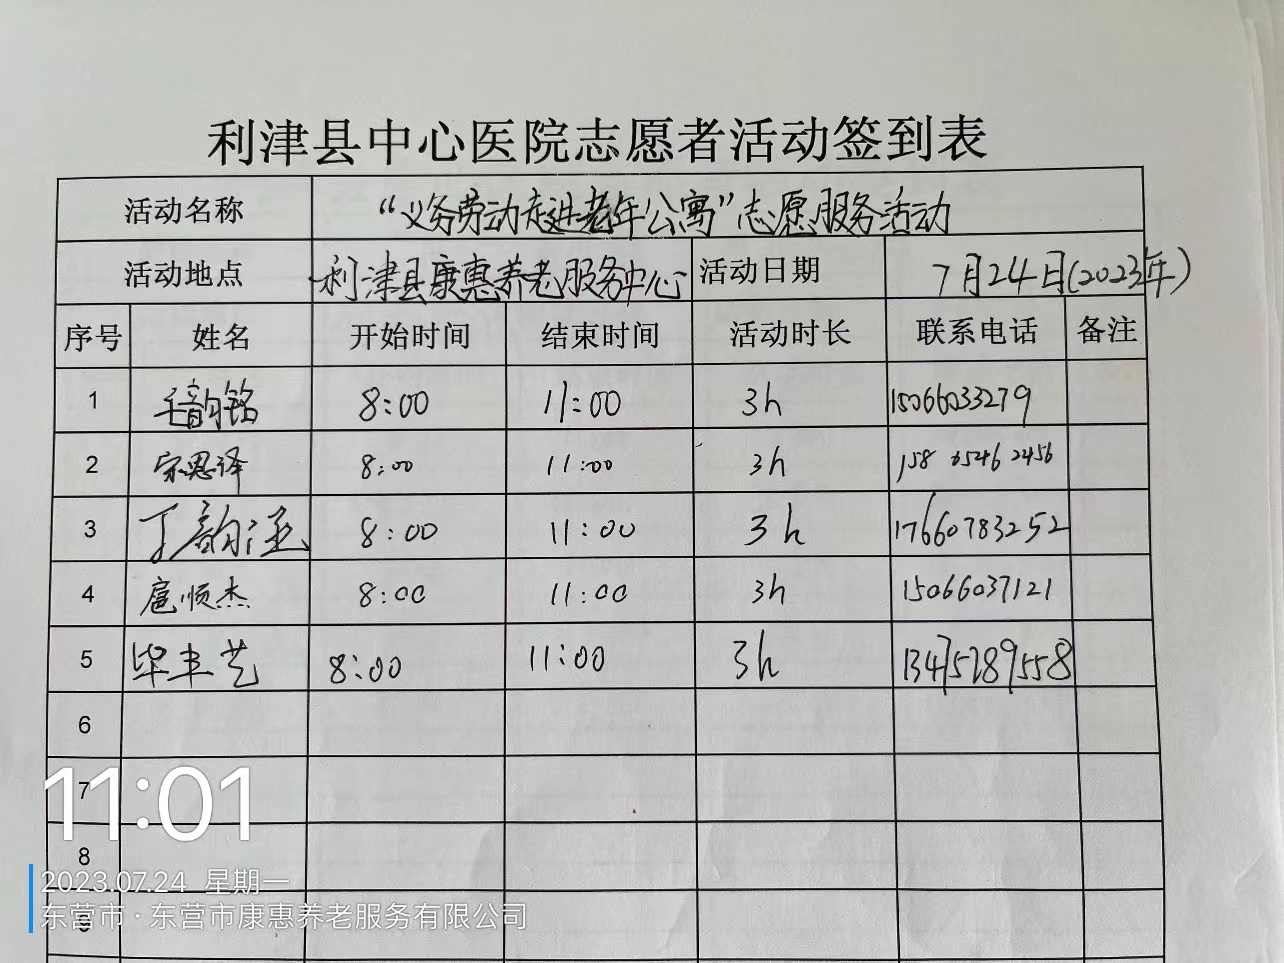 利津县中心医院志愿者活动签到表
活动名称 “义务劳动走进老年公寓”志愿服务活动
活动地点 利津县康惠养老服务中心 活动日期 7月24日(2023年)
序号 姓名 开始时间 结束时间 活动时长 联系电话 备注
1 毛韵铭 8:00 11:00 3h 15066033279
2 宋思译 8:00 11:00 3h 158 6546 2456
3 丁韵涵 8:00 11:00 3h 17660783252
4 扈顺杰 8:00 11:00 3h 15066037121
5 毕丰艺 8:00 11:00 3h 13475289558
6
7
8
9
11:01
2023.07.24 星期一
东营市·东营市康惠养老服务有限公司